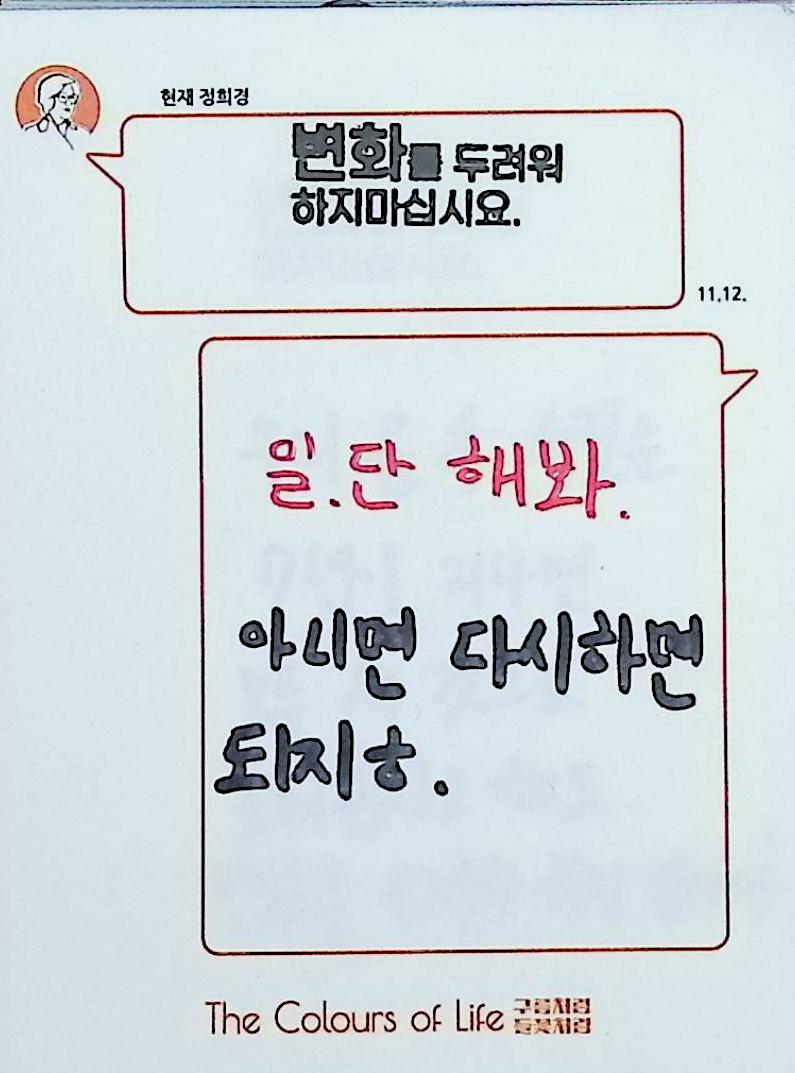 현재 정희경
변화를 두려워
하지마십시요.
11.12.
일.단 해봐.
아니면 다시하면
되지ㅎ.
The Colours of Life 구름처럼
들꽃처럼